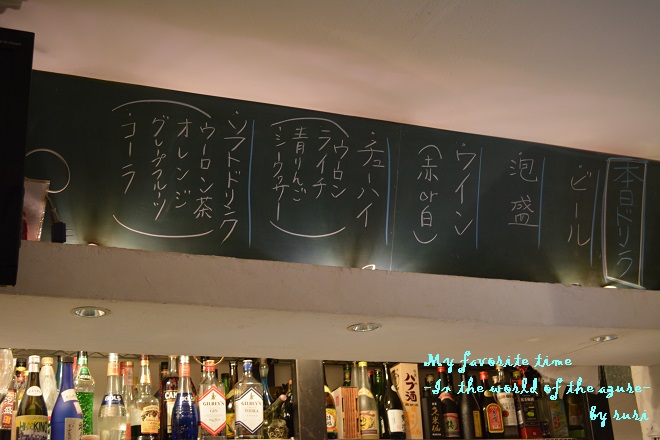 本日ドリンク
・ビール
・泡盛
・ワイン
(赤or白)
・チューハイ
ウーロン
ライチ
青りんご
シークヮサー
・ソフトドリンク
ウーロン茶
オレンジ
グレープフルーツ
コーラ
GILBEY'S
GIN
GILBEY'S
VODKA
My favorite time
-In the world of the azure-
by ruri